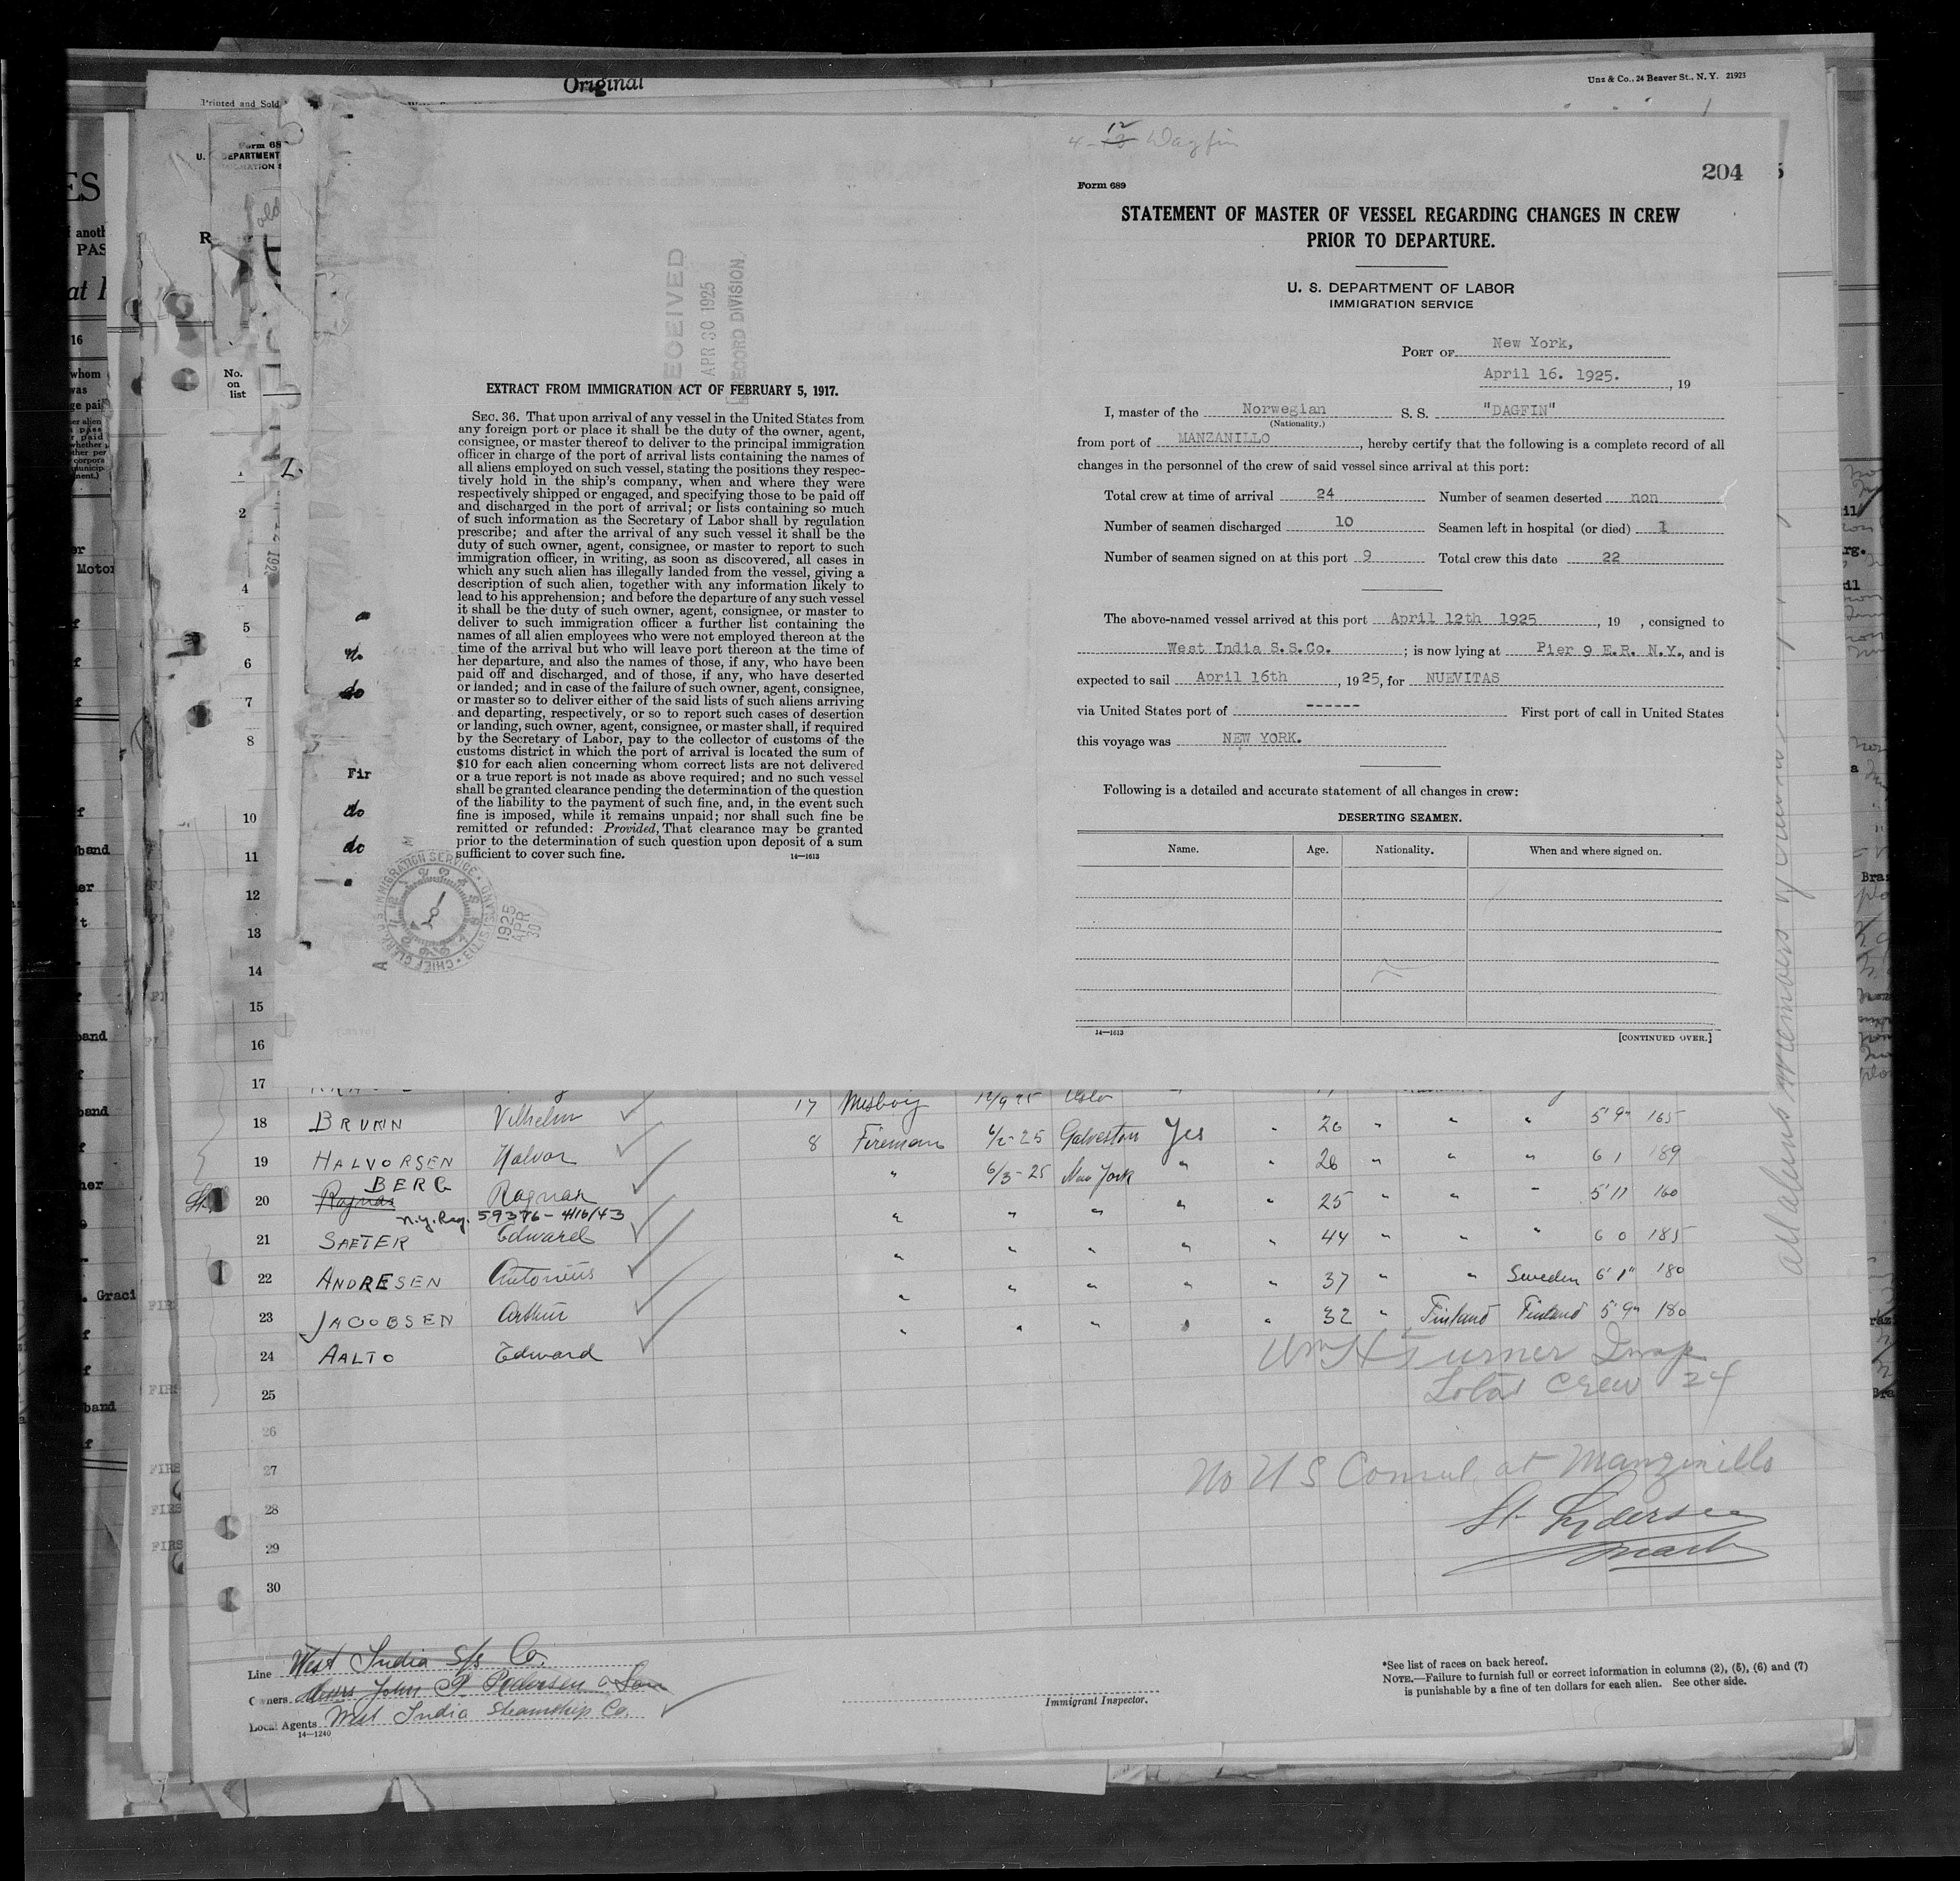 Original
Unz & Co., 24 Beaver St., N. Y. 21923
Printed and Sold
4- 12 Dagfin
204
Form 689
STATEMENT OF MASTER OF VESSEL REGARDING CHANGES IN CREW
PRIOR TO DEPARTURE.
U. S. DEPARTMENT OF LABOR
IMMIGRATION SERVICE
PORT OF New York,
April 16. 1925. , 19
I, master of the Norwegian S. S. "DAGFIN"
(Nationality.)
from port of MANZANILLO, hereby certify that the following is a complete record of all
changes in the personnel of the crew of said vessel since arrival at this port:
Total crew at time of arrival 24 Number of seamen deserted non
Number of seamen discharged 10 Seamen left in hospital (or died) 1
Number of seamen signed on at this port 9 Total crew this date 22
The above-named vessel arrived at this port April 12th 1925 , 19 , consigned to
West India S.S.Co. ; is now lying at Pier 9 E.R. N.Y., and is
expected to sail April 16th , 1925, for NUEVITAS
via United States port of ------ First port of call in United States
this voyage was NEW YORK.
Following is a detailed and accurate statement of all changes in crew:
DESERTING SEAMEN.
Name. Age. Nationality. When and where signed on.
14—1613
[CONTINUED OVER.]
RECEIVED
APR 30 1925
RECORD DIVISION.
EXTRACT FROM IMMIGRATION ACT OF FEBRUARY 5, 1917.
SEC. 36. That upon arrival of any vessel in the United States from
any foreign port or place it shall be the duty of the owner, agent,
consignee, or master thereof to deliver to the principal immigration
officer in charge of the port of arrival lists containing the names of
all aliens employed on such vessel, stating the positions they respec-
tively hold in the ship's company, when and where they were
respectively shipped or engaged, and specifying those to be paid off
and discharged in the port of arrival; or lists containing so much
of such information as the Secretary of Labor shall by regulation
prescribe; and after the arrival of any such vessel it shall be the
duty of such owner, agent, consignee, or master to report to such
immigration officer, in writing, as soon as discovered, all cases in
which any such alien has illegally landed from the vessel, giving a
description of such alien, together with any information likely to
lead to his apprehension; and before the departure of any such vessel
it shall be the duty of such owner, agent, consignee, or master to
deliver to such immigration officer a further list containing the
names of all alien employees who were not employed thereon at the
time of the arrival but who will leave port thereon at the time of
her departure, and also the names of those, if any, who have been
paid off and discharged, and of those, if any, who have deserted
or landed; and in case of the failure of such owner, agent, consignee,
or master so to deliver either of the said lists of such aliens arriving
and departing, respectively, or so to report such cases of desertion
or landing, such owner, agent, consignee, or master shall, if required
by the Secretary of Labor, pay to the collector of customs of the
customs district in which the port of arrival is located the sum of
$10 for each alien concerning whom correct lists are not delivered
or a true report is not made as above required; and no such vessel
shall be granted clearance pending the determination of the question
of the liability to the payment of such fine, and, in the event such
fine is imposed, while it remains unpaid; nor shall such fine be
remitted or refunded: Provided, That clearance may be granted
prior to the determination of such question upon deposit of a sum
sufficient to cover such fine. 14—1613
1925 APR 30
No. on list
2
4
5
6
7
8
10
11
12
13
14
15
16
17
18 BRUNN Vilhelm 17 Messboy 12/9 25 Oslo
19 HALVORSEN Halvor 8 Fireman 6/2-25 Galveston Yes " 26 " " " 5' 9" 165
20 BERG Ragnar " 6/3-25 New York " " 26 " " " 6 1 189
N.Y. Reg. 59376-4/16/43
21 SAETER Edward " " " " " 25 " " " 5' 11 160
22 ANDRESEN Antonius " " " " " 44 " " " 6 0 185
23 JACOBSEN Arthur " " " " " 37 " " Sweden 6' 1" 180
24 AALTO Edward " " " " " 32 " Finland Finland 5' 9" 180
25
26
27
28
29
30
Wm H Turner Insp
Total Crew 24
No U S Consul at Manzinillo
all aliens members of crew
Line West India S/s Co.
Owners John P. Pedersen & Son
Local Agents West India Steamship Co.
14—1240
Immigrant Inspector.
*See list of races on back hereof.
NOTE.—Failure to furnish full or correct information in columns (2), (5), (6) and (7)
is punishable by a fine of ten dollars for each alien. See other side.